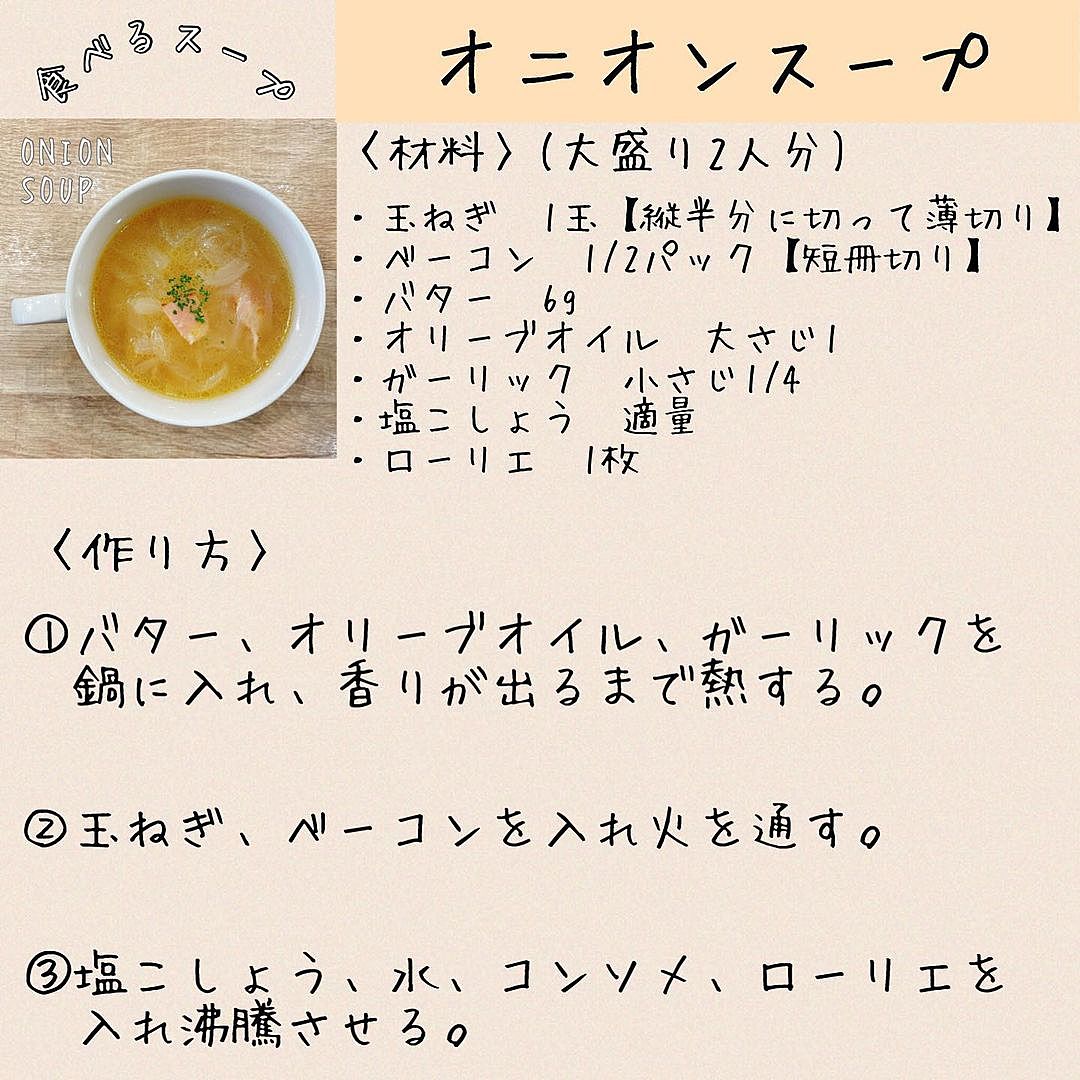 食べるスープ
オニオンスープ
ONION
SOUP
〈材料〉(大盛り2人分)
・玉ねぎ 1玉【縦半分に切って薄切り】
・ベーコン 1/2パック【短冊切り】
・バター 6g
・オリーブオイル 大さじ1
・ガーリック 小さじ1/4
・塩こしょう 適量
・ローリエ 1枚
〈作り方〉
①バター、オリーブオイル、ガーリックを
鍋に入れ、香りが出るまで熱する。
②玉ねぎ、ベーコンを入れ火を通す。
③塩こしょう、水、コンソメ、ローリエを
入れ沸騰させる。